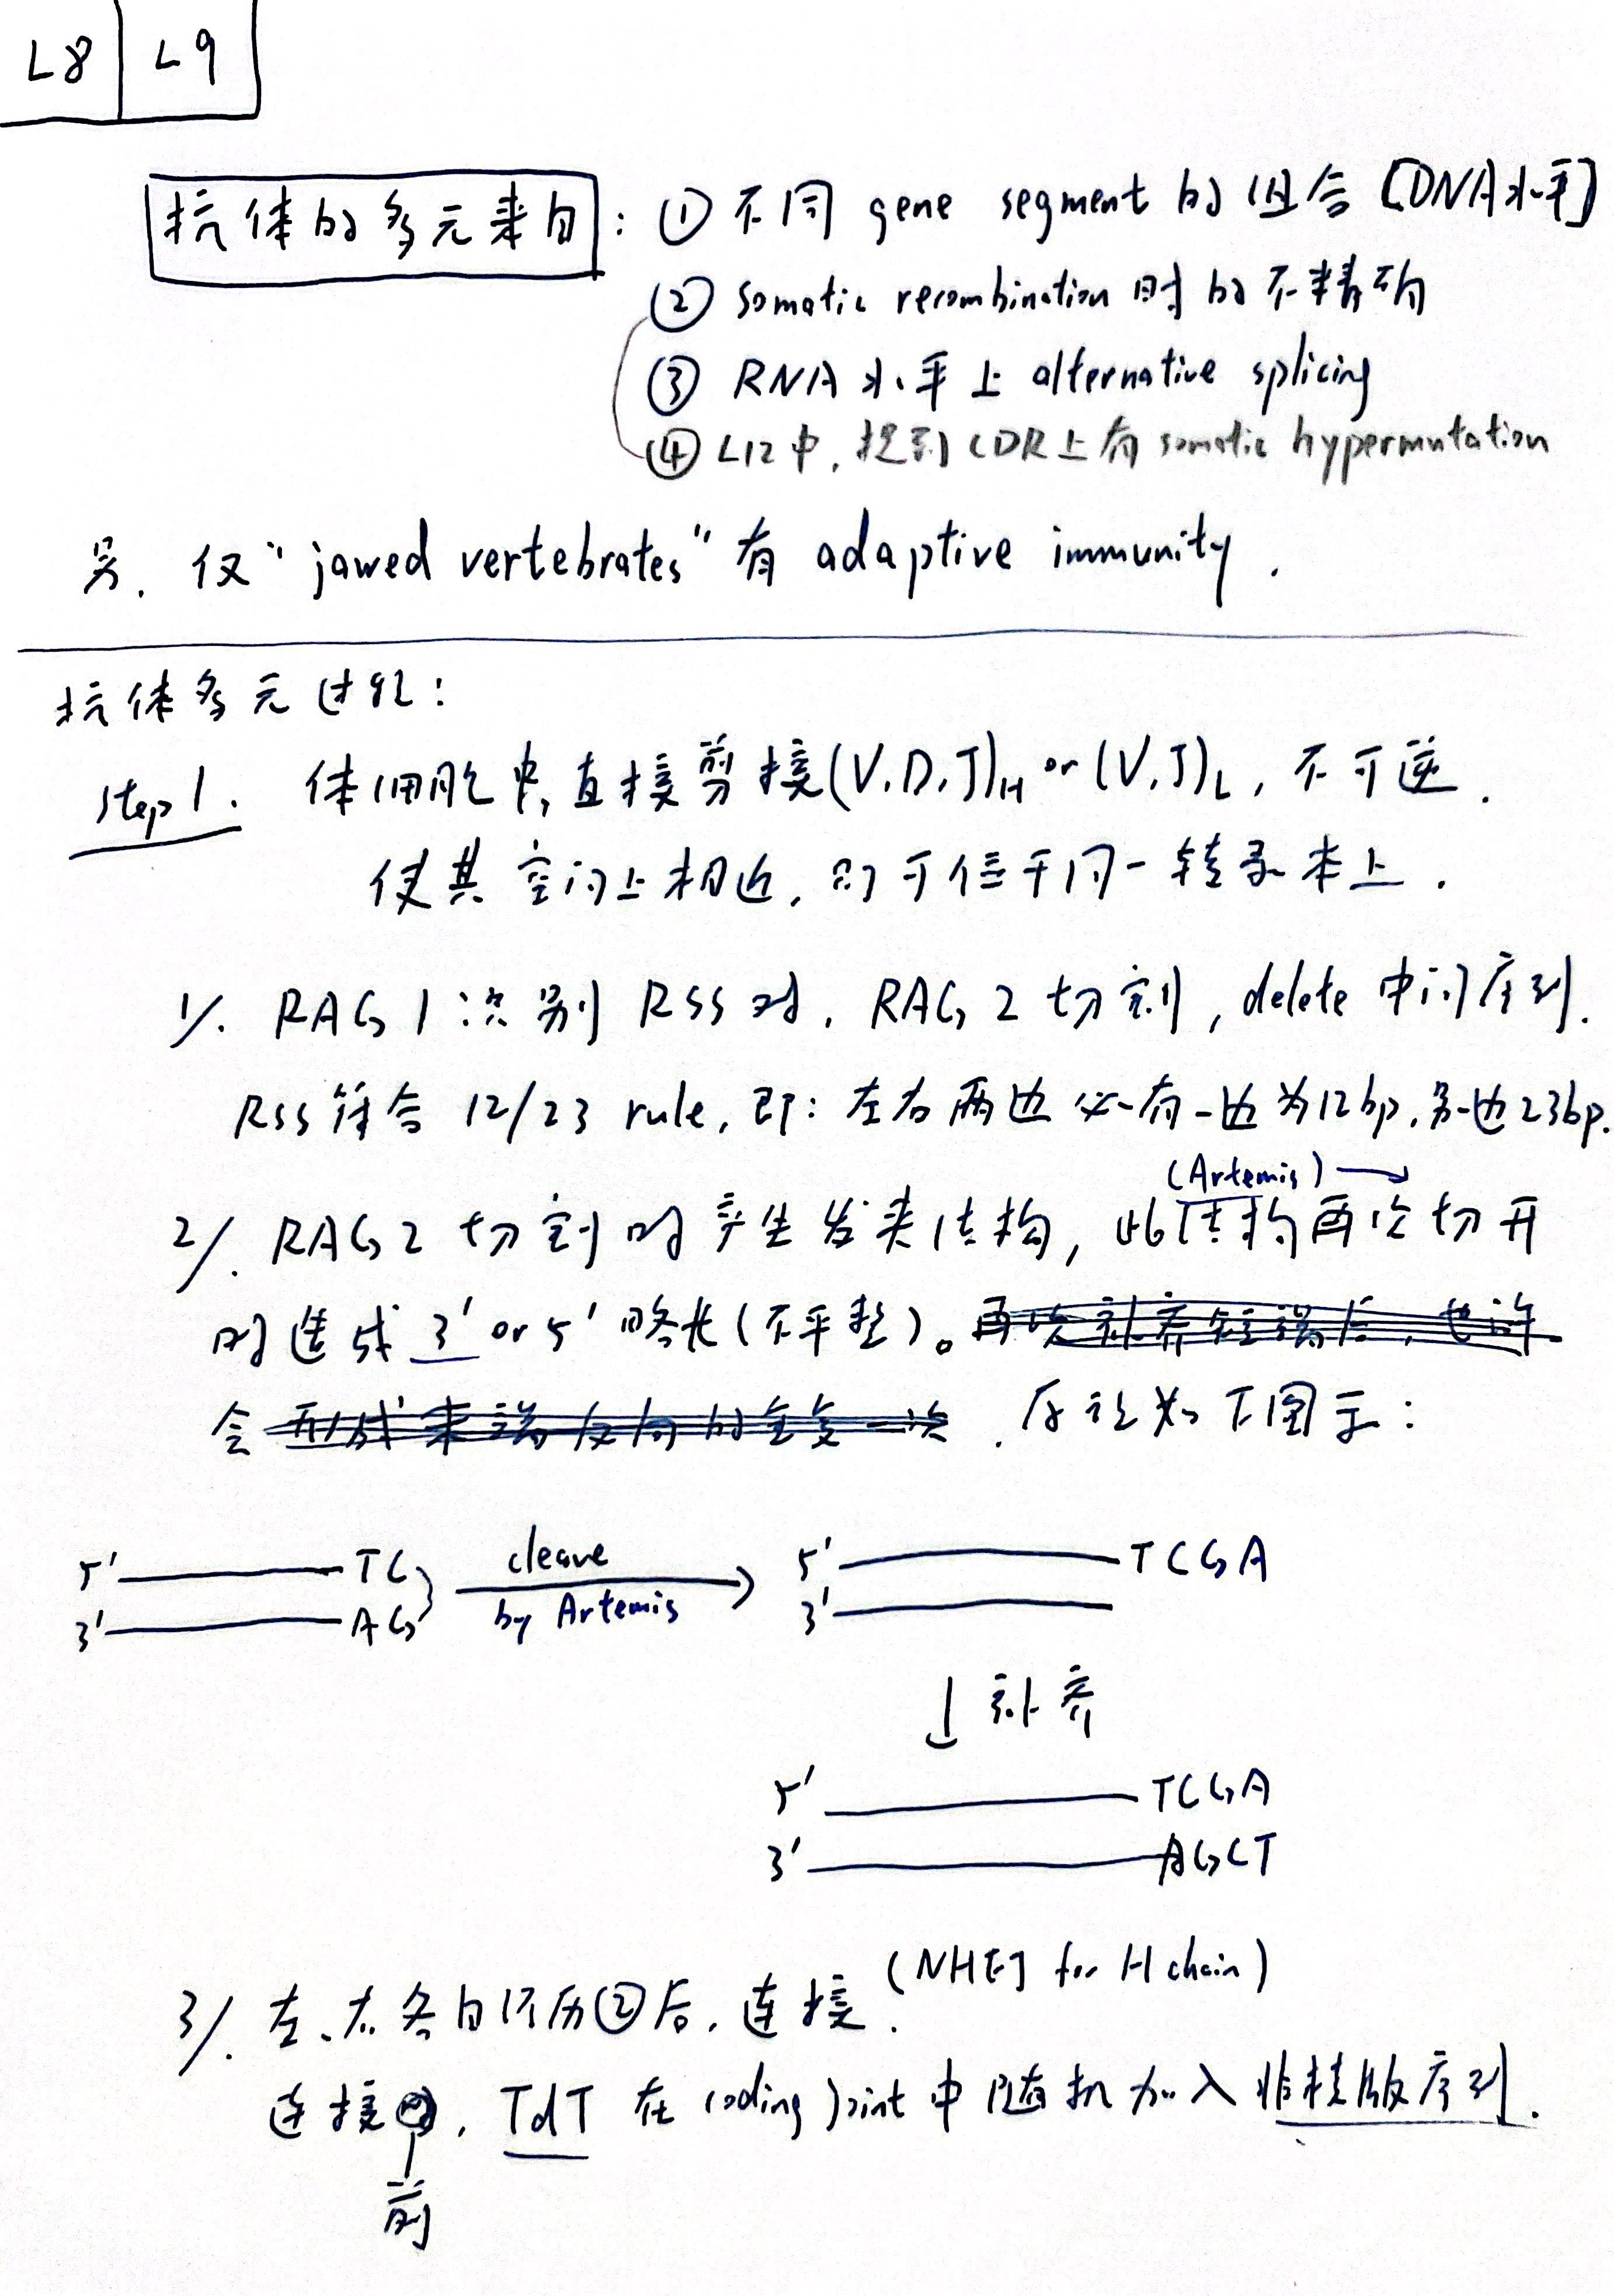 L8 L9
抗体的多元来自: ① 不同 gene segment 的组合 [DNA水平]
② somatic recombination 时的不精确
③ RNA 水平上 alternative splicing
④ L12中, 提到 CDR上有 somatic hypermutation
另. 仅 "jawed vertebrates" 有 adaptive immunity.
抗体多元过程:
step 1. 体细胞中, 直接剪接 (V.D.J)H or (V.J)L, 不可逆.
使其空间上相近, 则可位于同一转录本上.
1/. RAG 1 识别 RSS 对, RAG 2 切割, delete 中间序列.
RSS符合 12/23 rule, 即: 左右两边必有一边为12bp, 另一边23bp.
(Artemis) →
2/. RAG 2 切割时产生发夹结构, 此结构再次切开
时造成 3' or 5' 略长 (不平整)。再次补齐短端后, 也许
会形成末端反向的重复一次. 后设如下图示:
5' TC cleave 5' TCGA
3' AG by Artemis 3'
↓ 补齐
5' TCGA
3' AGCT
3/. 左、右各自经历②后, 连接. (NHEJ for H chain)
连接, TdT 在 coding joint 中随机加入非模版序列.
前